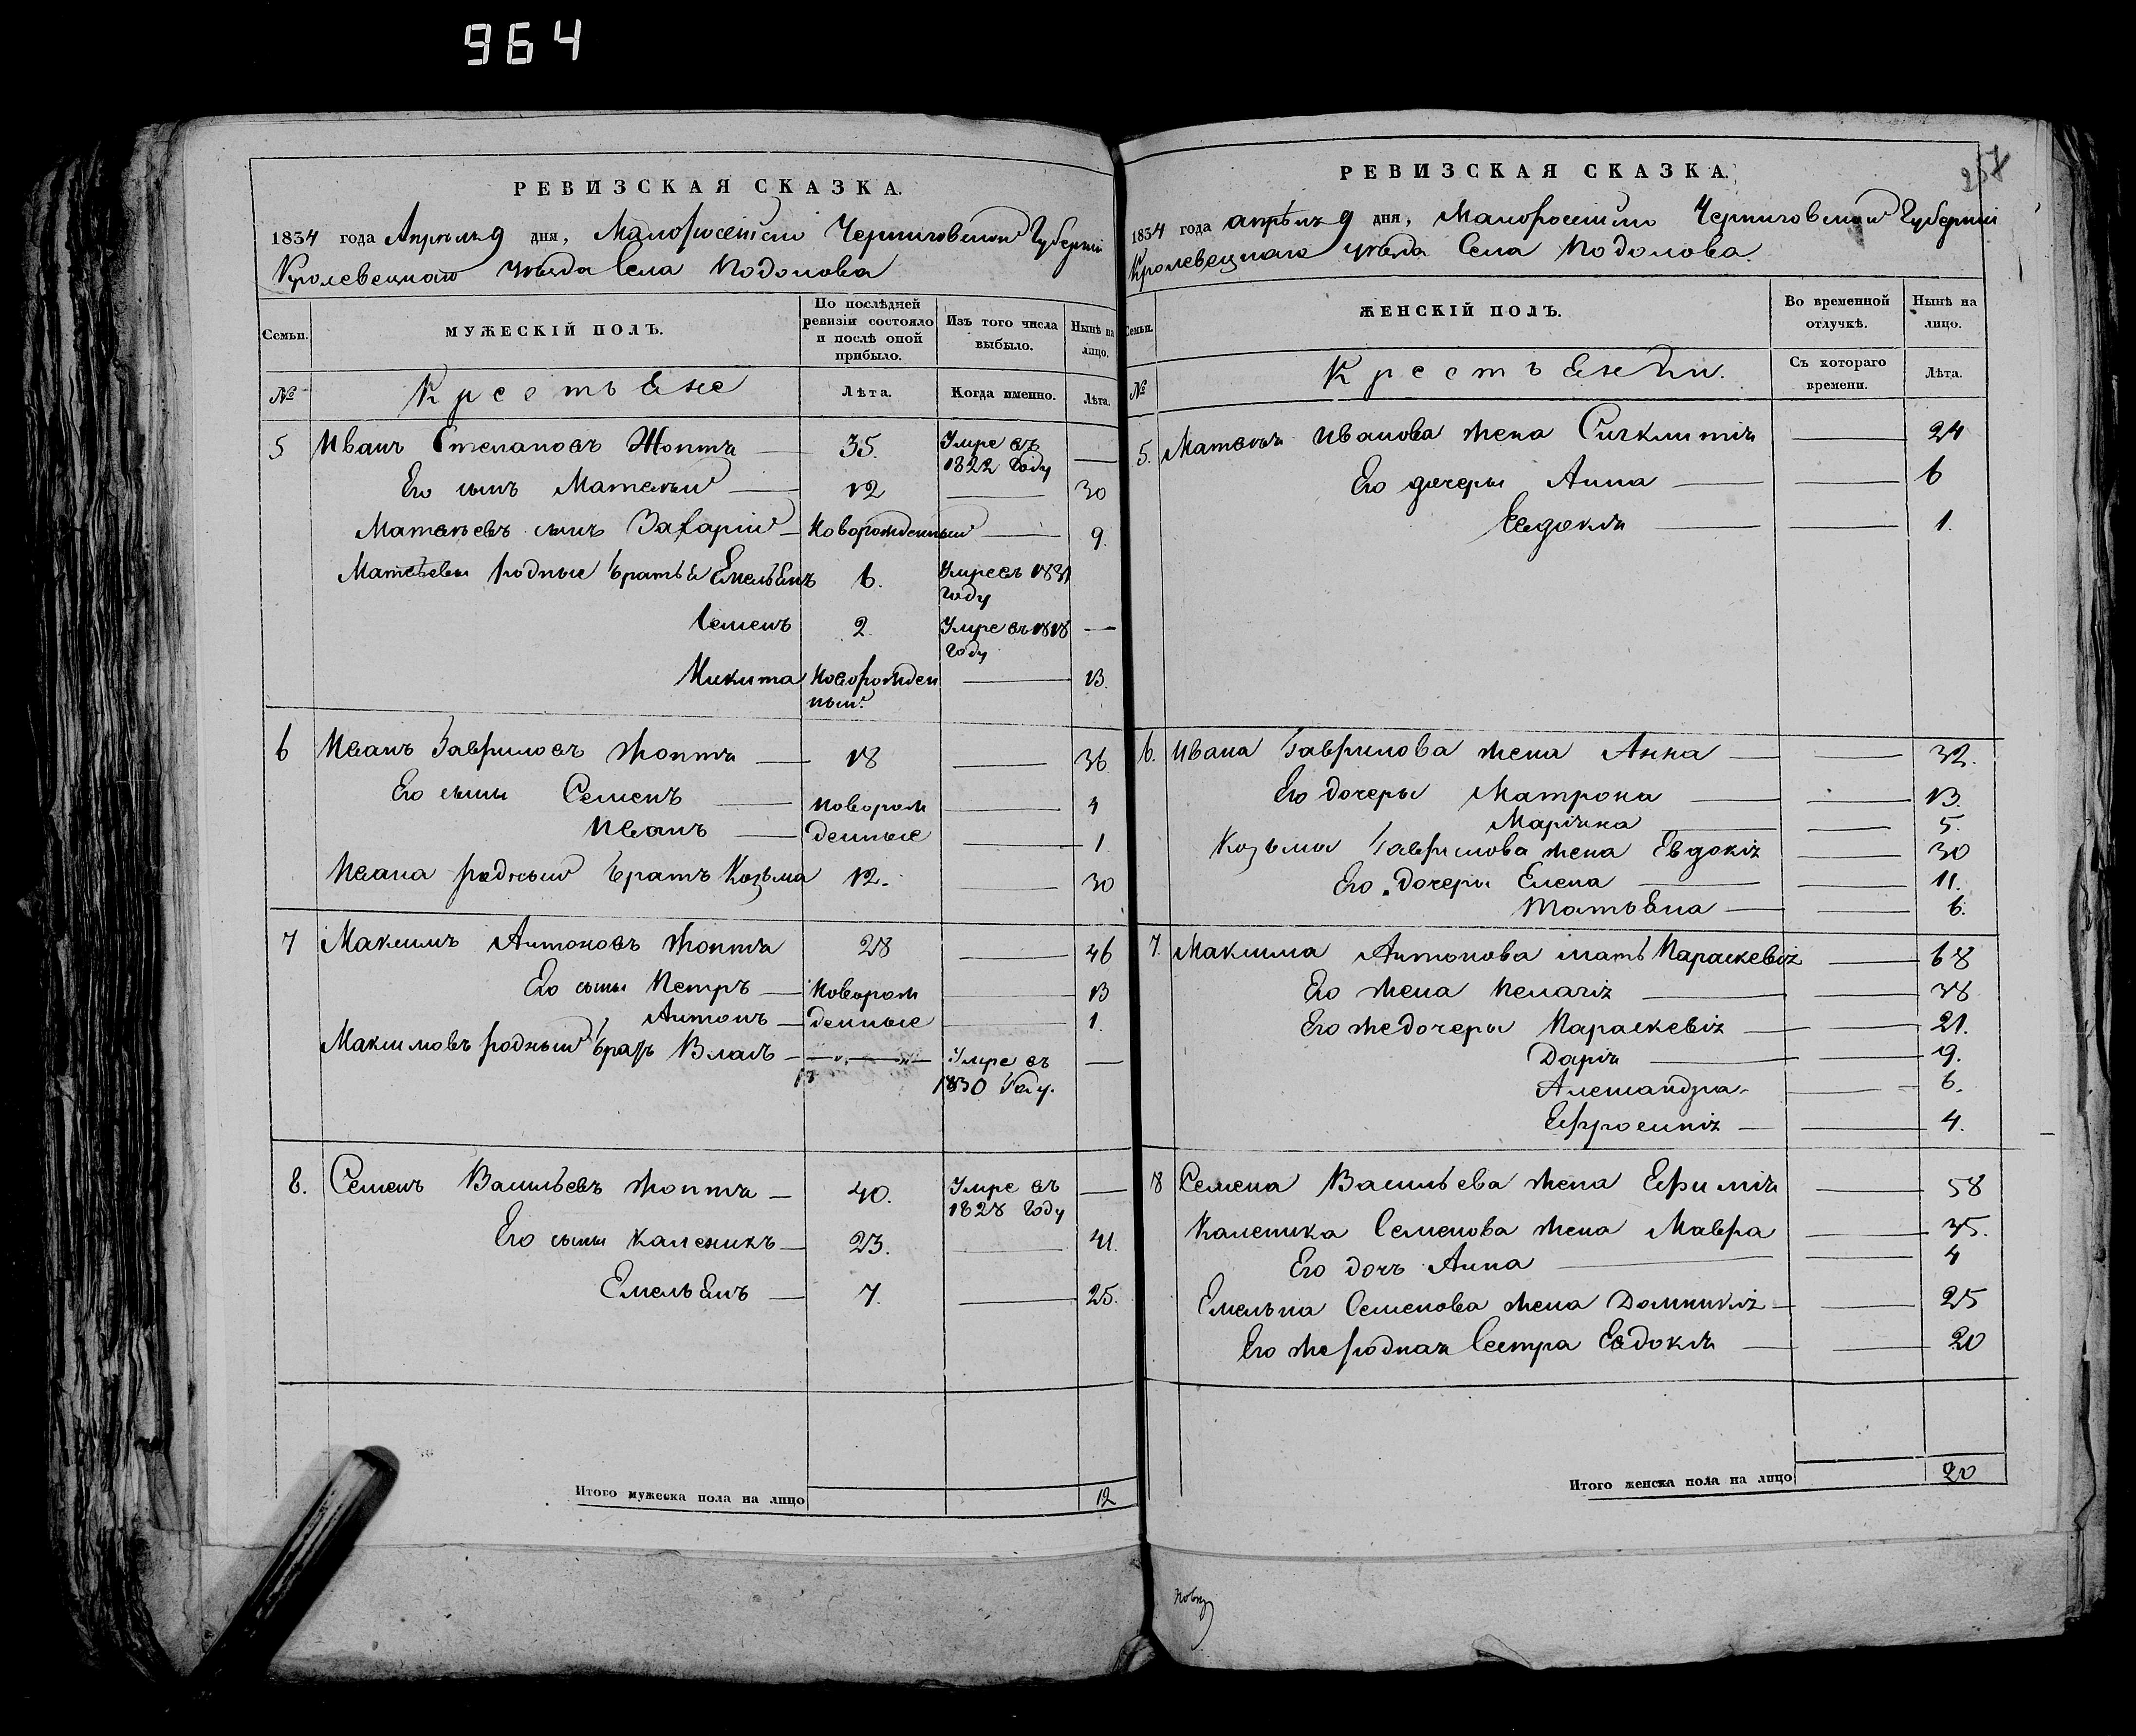 964
РЕВИЗСКАЯ СКАЗКА.
1834 года Апрѣля 9 дня, Малоросійской Черниговской Губерніи
Кролевецкаго уѣзда Села Подолова
Семьи.
МУЖЕСКІЙ ПОЛЪ.
По послѣдней ревизіи состояло и послѣ оной прибыло.
Изъ того числа выбыло.
Нынѣ на лицо.
№
Крестьяне
Лѣта.
Когда именно.
Лѣта.
5 Иванъ Степановъ Жоптя 35. Умре въ 1822 году —
Его сынъ Матвѣй 12 — 30
Матвѣевъ сынъ Захарій Новорожденный — 9
Матвѣевы родные братья Емельянъ 6. Умре въ 1831 году
Семенъ 2. Умре въ 1818 году —
Микита Новорожденный — 13.
6 Иванъ Гавриловъ Жоптя 18 — 36
Его сыны Семенъ новорож — 4
Иванъ денные — 1
Ивана родный братъ Козьма 12. — 30
7 Максимъ Антоновъ Жоптя 28 — 46
Его сыны Петръ Новорож — 13
Антонъ денные — 1.
Максимовъ родный братъ Власъ — Умре въ 1830 году. —
8. Семенъ Васильевъ Жоптя 40. Умре въ 1828 году —
Его сыны Каленикъ 23. — 41.
Емельянъ 7. — 25.
Итого мужеска пола на лицо 12
РЕВИЗСКАЯ СКАЗКА.
1834 года апрѣля 9 дня, Малоросійской Черниговской Губерніи
Кролевецкаго уѣзда Села Подолова.
Семьи.
ЖЕНСКІЙ ПОЛЪ.
Во временной отлучкѣ.
Нынѣ на лицо.
№
Крестьянки.
Съ котораго времени.
Лѣта.
5. Матвѣя Иванова жена Сигклитія — 24
Его дочеры Анна — 6
Евдокія — 1.
6. Ивана Гаврилова жена Анна — 32.
Его дочеры Матрона — 13.
Марѣна — 5.
Козьмы Гаврилова жена Евдокія — 30
Его дочеры Елена — 11.
Татьяна — 6.
7. Максима Антонова мать Параскевія — 68
Его жена Пелагія — 38
Его же дочеры Параскевія — 21.
Дарія — 9.
Александра — 6.
Ефросинія — 4.
8 Семена Васильева жена Ефимія — 58
Каленика Семенова жена Мавра — 35.
Его дочъ Анна — 4
Емельяна Семенова жена Домникія — 25
Его же родная сестра Евдокія — 20
Итого женска пола на лицо 20